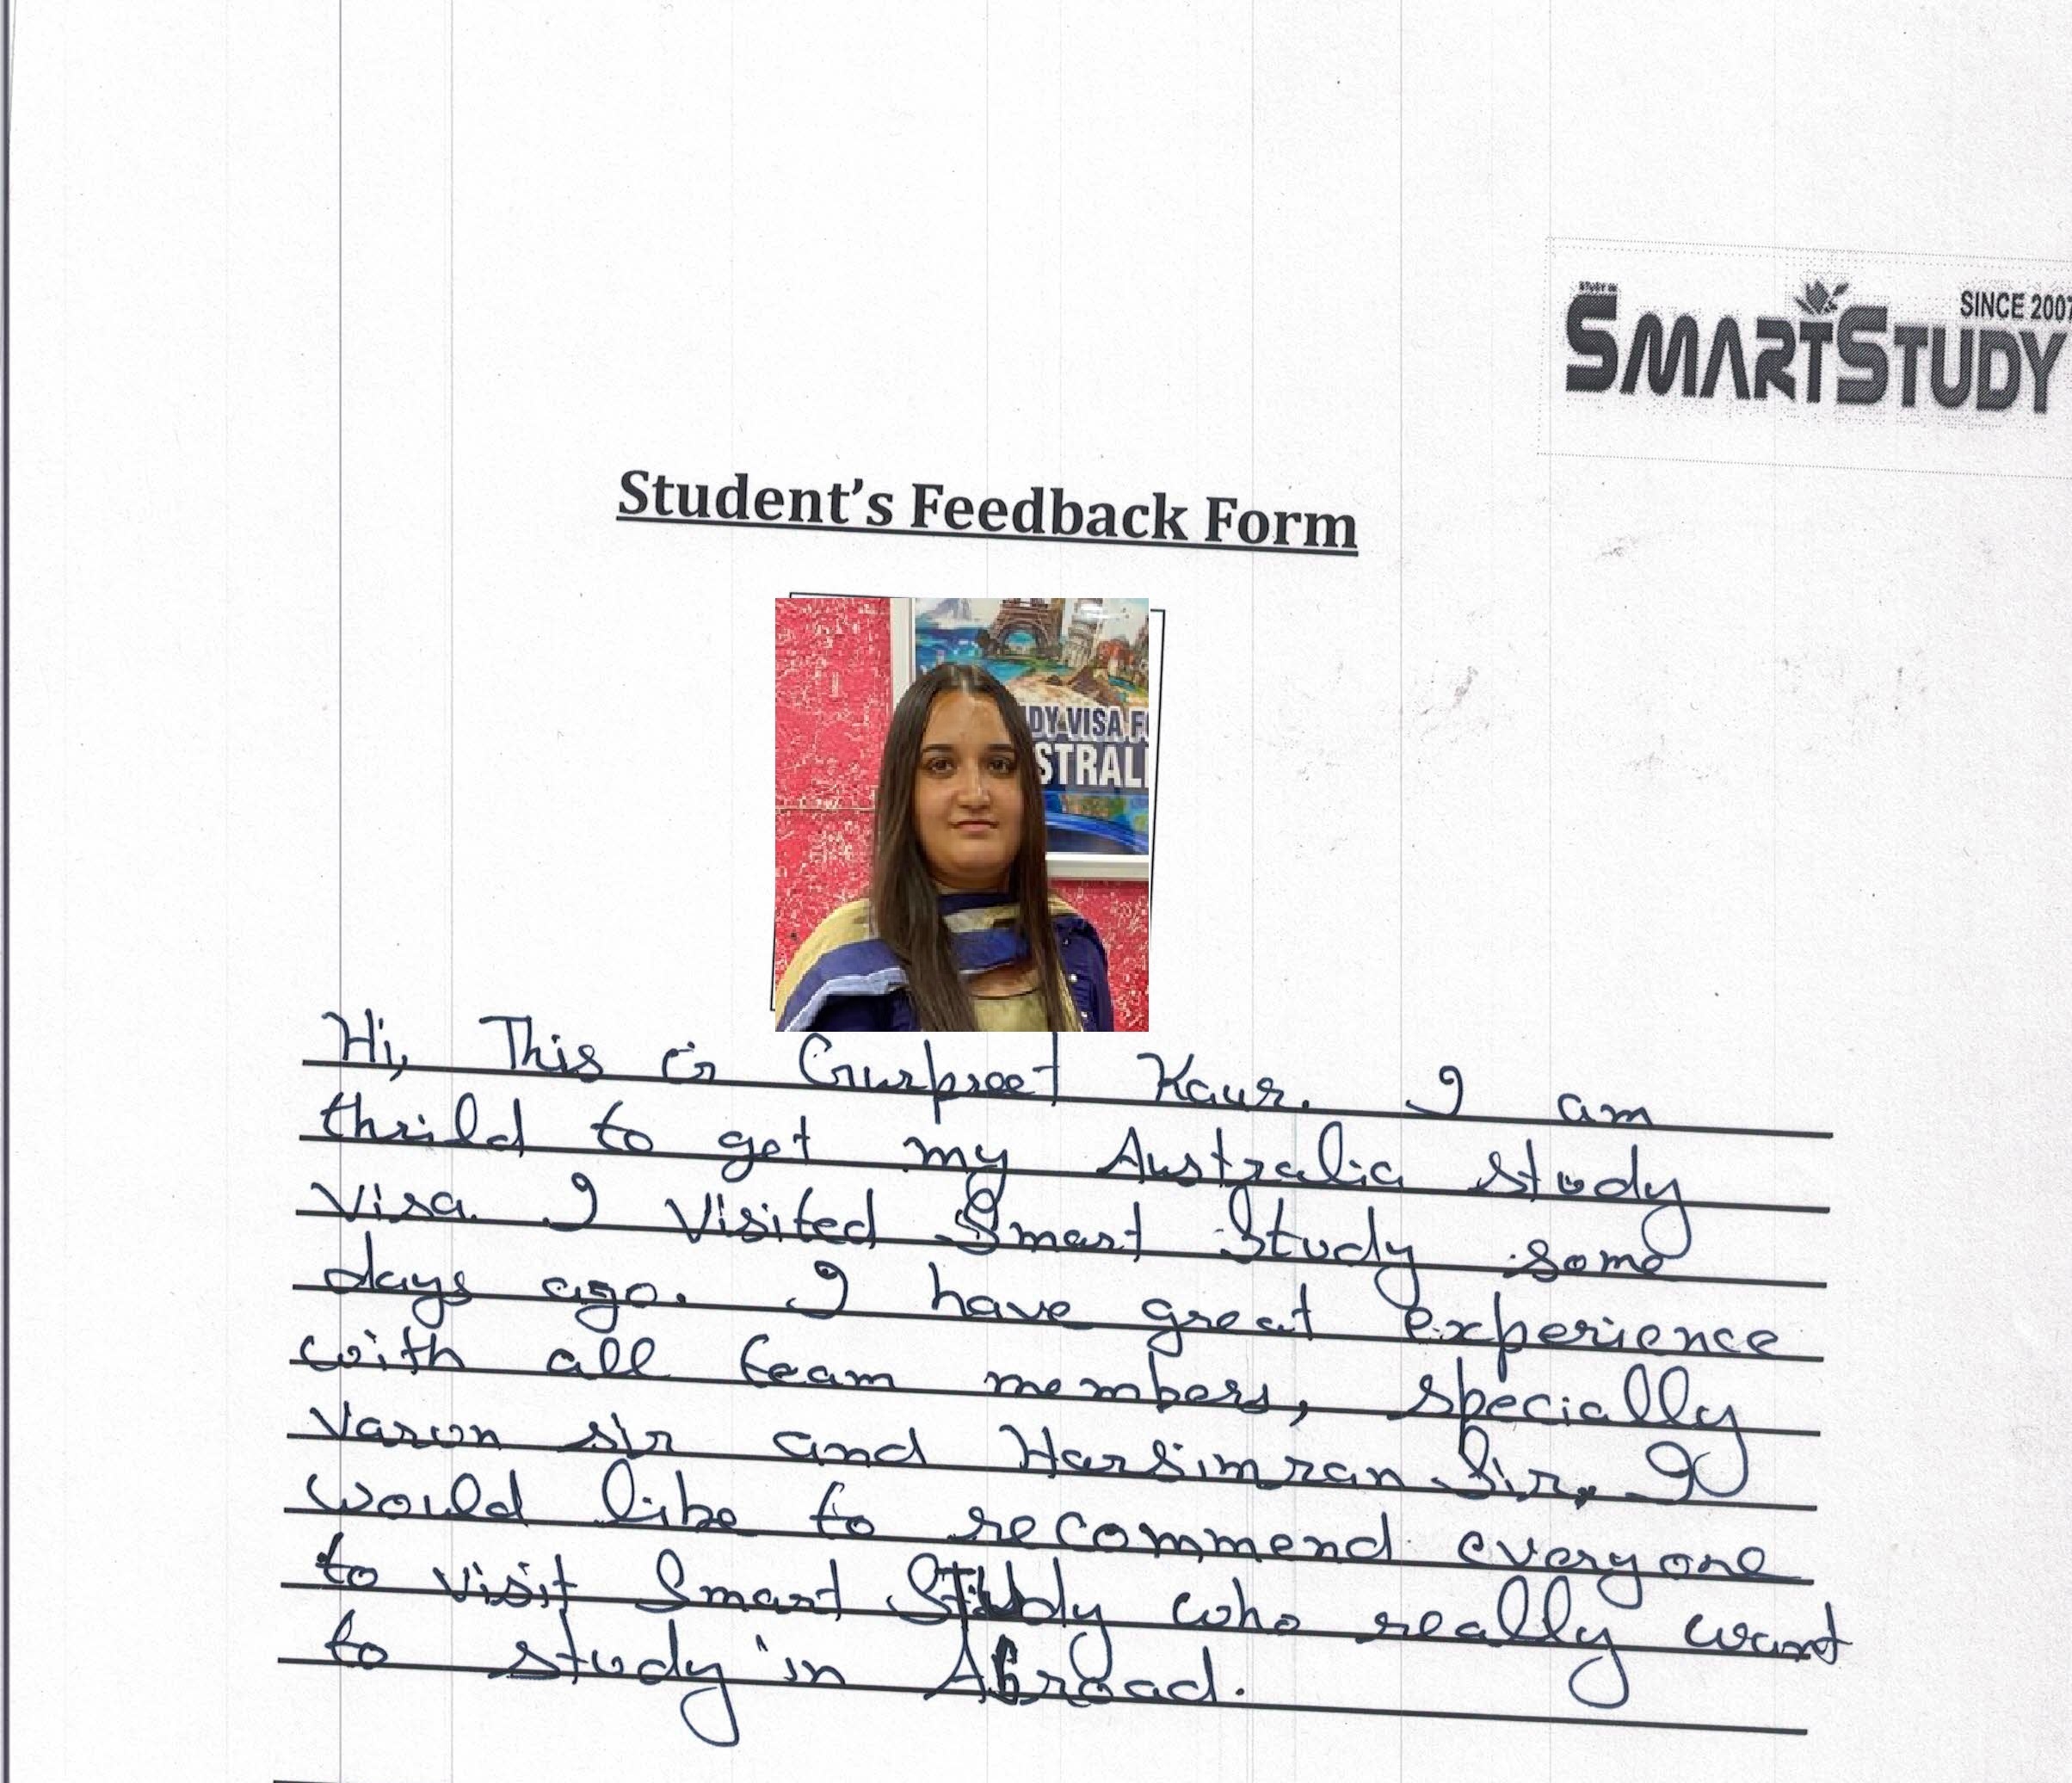 STUDY IN
SINCE 2007
SMARTSTUDY
Student's Feedback Form
DY VISA F
STRAL
Hi, This is Gurpreet Kaur. I am
thrild to get my Australia study
Visa. I Visited Smart Study some
days ago. I have great experience
with all team members, specially
Varun sir and Harsimran Sir. I
would like to recommend everyone
to visit Smart Study who really want
to study in Abroad.